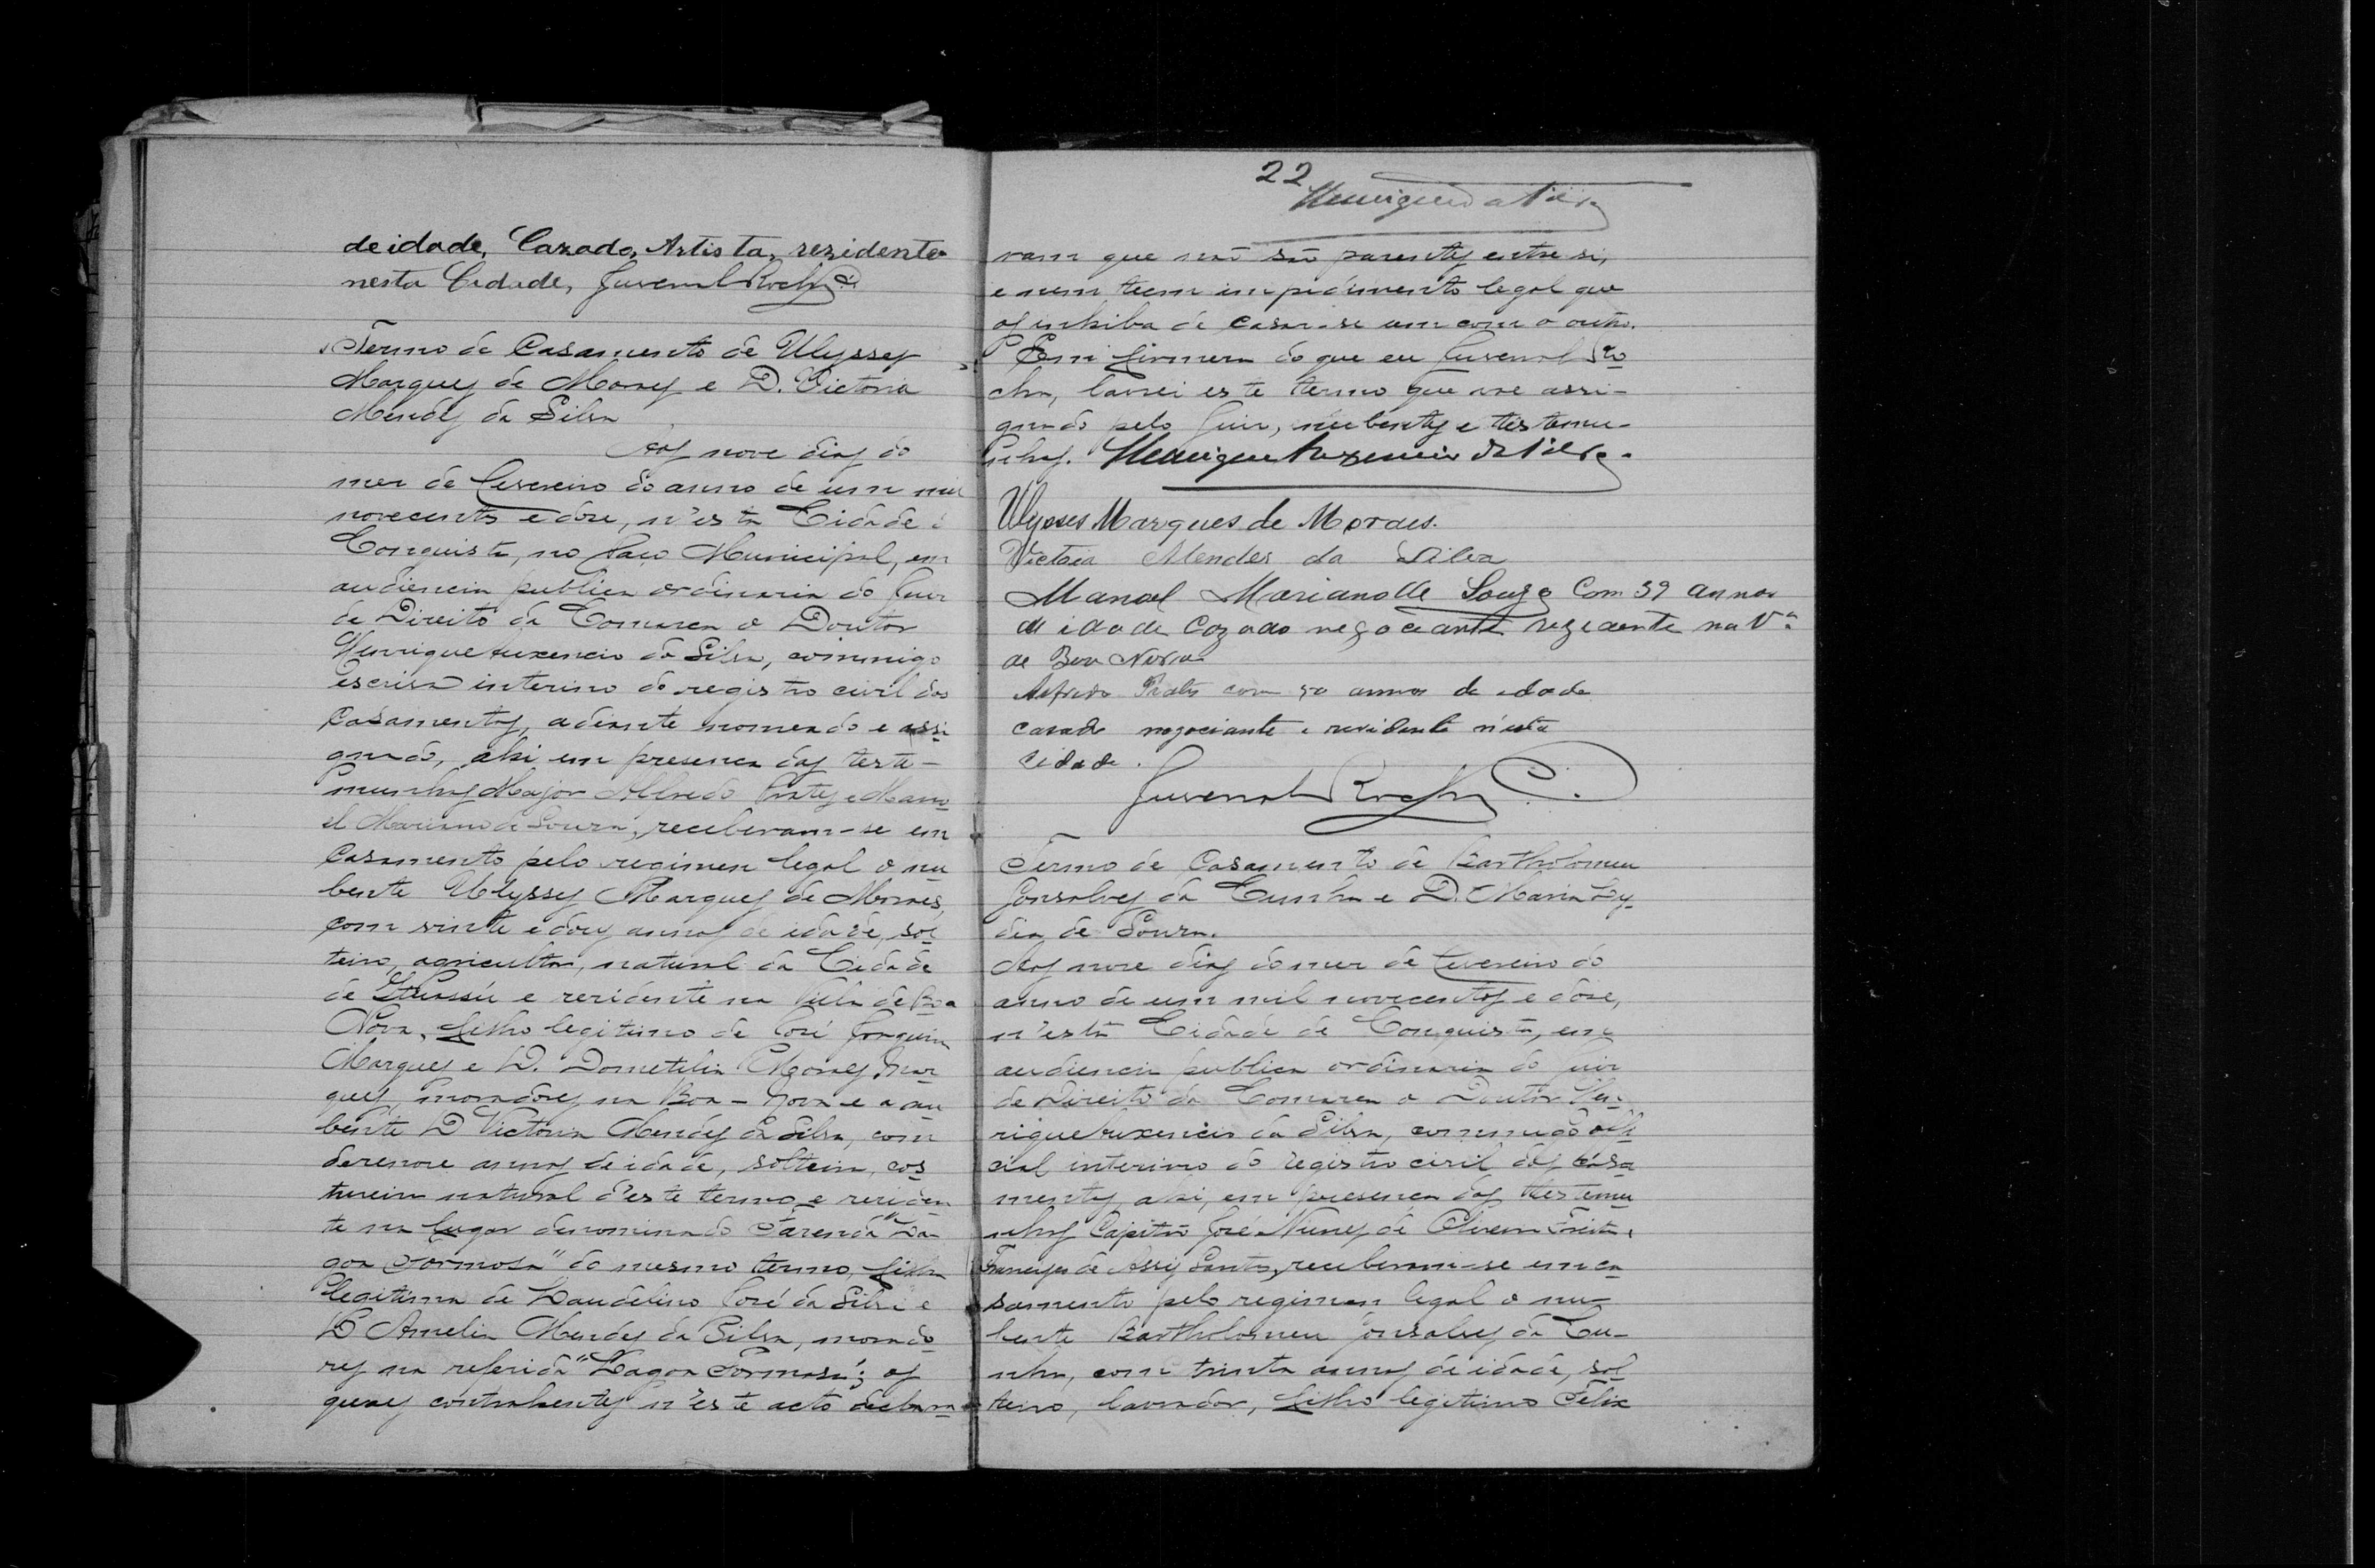 de idade, Cazado, Artista, rezidente
nesta Cidade, Juvenal Rocha
Termo de Casamento de Ulysses
Marques de Moraes e D. Victoria
Mendes da Silva
Aos nove dias do
mez de Fevereiro do anno de um mil
novecentos e doze, n'esta Cidade
Conquista, no Paço Municipal, em
audiencia publica ordinaria do Juiz
de Direito da Comarca o Doutor
Henrique Auxencio da Silva, commigo
escrivão interino do registro civil dos
casamentos, adiante nomeado e assi-
gnado, ahi em presença das teste-
munhas Major Alfredo Prates e Mano-
el Mariano de Souza, receberam-se em
casamento pelo regimen legal o nu-
bente Ulysses Marques de Moraes,
com vinte e dous annos de idade, sol-
teiro, agricultor, natural da Cidade
de e rezidente na Villa de Boa
Nova, filho legitimo de José Joaquim
Marques e D. Dometilia Moraes Mar-
ques, moradores na Boa-Nova e a nu-
bente D. Victoria Mendes da Silva, com
dezenove annos de idade, solteira, cos-
tureira natural d'este termo e reziden-
te no lugar denominado Fazenda "La-
goa Formosa" do mesmo termo, filha
legitima de Laudelino José da Silva e
D. Amelia Mendes da Silva, morado-
res na referida "Lagoa Formosa"; os
quaes contrahentes n'este acto declara-
22
Henrique da Silva
ram que não são parentes entre si,
e nem teem impedimento legal que
os inhiba de casar-se um com o outro.
Em firmeza do que eu Juvenal Ro-
cha, lavrei este termo que vae assi-
gnado pelo Juiz, nubentes e testemu-
nhas. Henrique Auxencio da Silva.
Ulysses Marques de Moraes.
Victoria Mendes da Silva
Manoel Mariano de Souza Com 39 annos
de idade Cazado negociante rezidente na Vª
de Boa Nova
Alfredo Prates com 50 annos de edade
casado negociante e residente n'esta
Cidade.
Juvenal Rocha
Termo de Casamento de Bartholomeu
Gonsalves da Cunha e D. Maria Ly-
dia de Souza.
Aos nove dias do mez de Fevereiro do
anno de um mil novecentos e doze,
n'esta Cidade de Conquista, em
audiencia publica ordinaria do Juiz
de Direito da Comarca o Doutor Hen-
rique Auxencio da Silva, commigo offi-
cial interino do registro civil dos casa-
mentos, ahi, em presença das testemu-
nhas Capitão José Nunes de Oliveira Freitas e
Francisco de Assis Santos, receberam-se em ca-
samento pelo regimen legal o nu-
bente Bartholomeu Gonsalves da Cu-
nha, com trinta annos de idade, sol-
teiro, lavrador, filho legitimo Felix